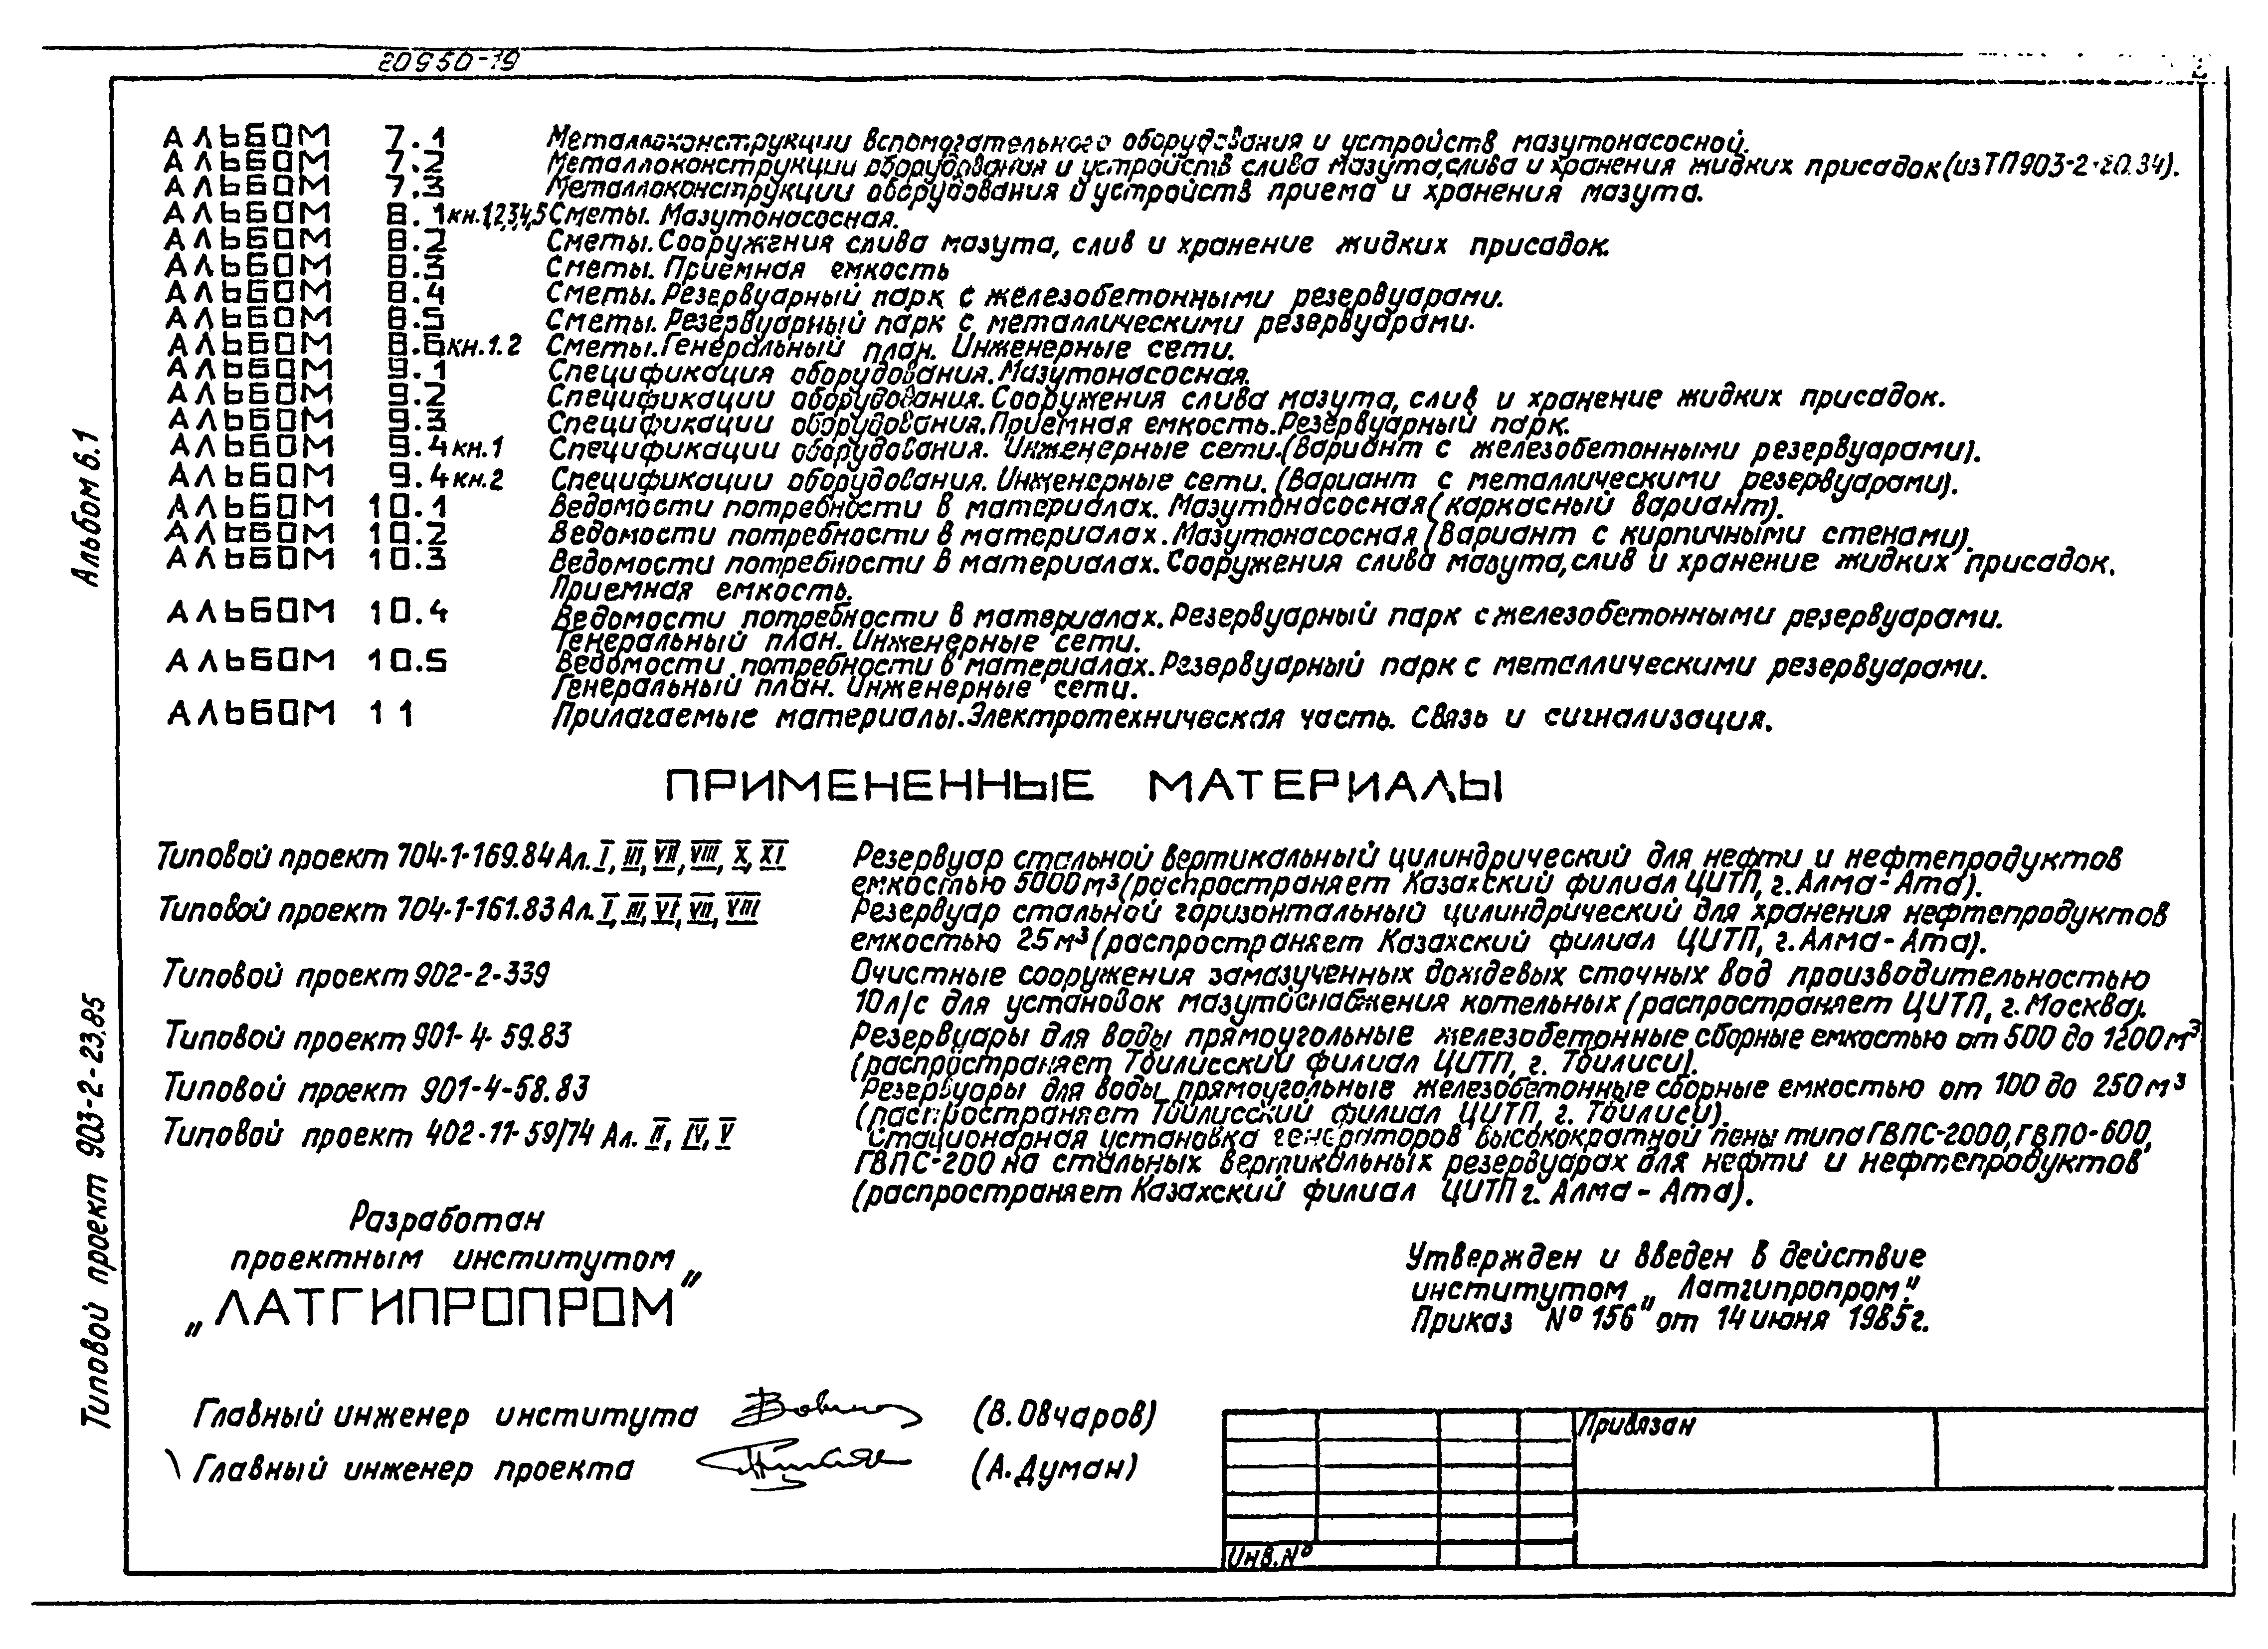 20950-19
2
АЛЬБОМ 7.1 Металлоконструкции вспомогательного оборудования и устройств мазутонасосной.
АЛЬБОМ 7.2 Металлоконструкции оборудования и устройств слива мазута, слива и хранения жидких присадок (из ТП 903-2-20.34).
АЛЬБОМ 7.3 Металлоконструкции оборудования и устройств приема и хранения мазута.
АЛЬБОМ 8.1 кн.1,2,3,4,5 Сметы. Мазутонасосная.
АЛЬБОМ 8.2 Сметы. Сооружения слива мазута, слив и хранение жидких присадок.
АЛЬБОМ 8.3 Сметы. Приемная емкость
АЛЬБОМ 8.4 Сметы. Резервуарный парк с железобетонными резервуарами.
АЛЬБОМ 8.5 Сметы. Резервуарный парк с металлическими резервуарами.
АЛЬБОМ 8.6 кн.1.2 Сметы. Генеральный план. Инженерные сети.
АЛЬБОМ 9.1 Спецификация оборудования. Мазутонасосная.
АЛЬБОМ 9.2 Спецификации оборудования. Сооружения слива мазута, слив и хранение жидких присадок.
АЛЬБОМ 9.3 Спецификации оборудования. Приемная емкость. Резервуарный парк.
АЛЬБОМ 9.4 кн.1 Спецификации оборудования. Инженерные сети. (Вариант с железобетонными резервуарами).
АЛЬБОМ 9.4 кн.2 Спецификации оборудования. Инженерные сети. (Вариант с металлическими резервуарами).
АЛЬБОМ 10.1 Ведомости потребности в материалах. Мазутонасосная (каркасный вариант).
АЛЬБОМ 10.2 Ведомости потребности в материалах. Мазутонасосная (Вариант с кирпичными стенами).
АЛЬБОМ 10.3 Ведомости потребности в материалах. Сооружения слива мазута, слив и хранение жидких присадок.
Приемная емкость.
АЛЬБОМ 10.4 Ведомости потребности в материалах. Резервуарный парк с железобетонными резервуарами.
Генеральный план. Инженерные сети.
АЛЬБОМ 10.5 Ведомости потребности в материалах. Резервуарный парк с металлическими резервуарами.
Генеральный план. Инженерные сети.
АЛЬБОМ 11 Прилагаемые материалы. Электротехническая часть. Связь и сигнализация.
ПРИМЕНЕННЫЕ МАТЕРИАЛЫ
Типовой проект 704-1-169.84 Ал. I, III, VII, VIII, X, XI Резервуар стальной вертикальный цилиндрический для нефти и нефтепродуктов
емкостью 5000 м³ (распространяет Казахский филиал ЦИТП, г. Алма-Ата).
Типовой проект 704-1-161.83 Ал. I, III, VI, VII, VIII Резервуар стальной горизонтальный цилиндрический для хранения нефтепродуктов
емкостью 25 м³ (распространяет Казахский филиал ЦИТП, г. Алма-Ата).
Типовой проект 902-2-339 Очистные сооружения замазученных дождевых сточных вод производительностью
10 л/с для установок мазутоснабжения котельных (распространяет ЦИТП, г. Москва).
Типовой проект 901-4-59.83 Резервуары для воды прямоугольные железобетонные сборные емкостью от 500 до 1200 м³
(распространяет Тбилисский филиал ЦИТП, г. Тбилиси).
Типовой проект 901-4-58.83 Резервуары для воды прямоугольные железобетонные сборные емкостью от 100 до 250 м³
(распространяет Тбилисский филиал ЦИТП, г. Тбилиси).
Типовой проект 402-11-59/74 Ал. II, IV, V Стационарная установка генераторов высокократной пены типа ГВПС-2000, ГВПО-600,
ГВПС-200 на стальных вертикальных резервуарах для нефти и нефтепродуктов
(распространяет Казахский филиал ЦИТП г. Алма-Ата).
Разработан
проектным институтом
„ЛАТГИПРОПРОМ"
Утвержден и введен в действие
институтом „Латгипропром."
Приказ №156" от 14 июня 1985г.
Главный инженер института (В. Овчаров)
Главный инженер проекта (А. Думан)
Привязан
Инв. №
Альбом 6.1
Типовой проект 903-2-23.85